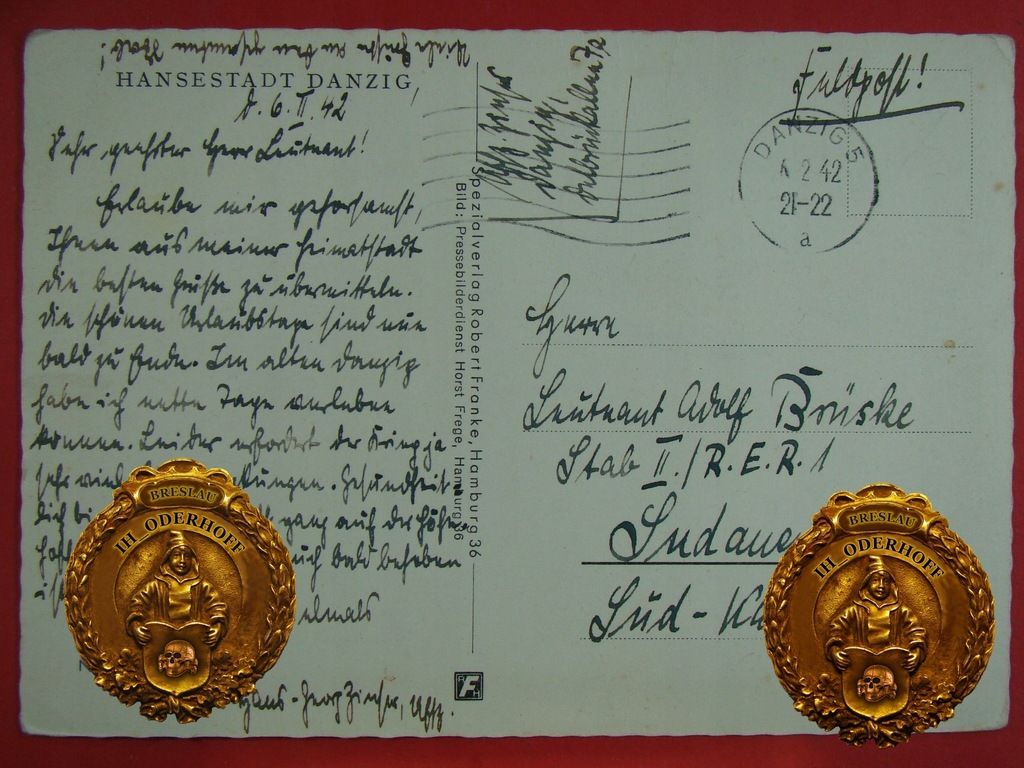 Viele Grüße an den gesamten Stab!
HANSESTADT DANZIG,
d. 6. II. 42
Sehr geehrter Herr Leutnant!
Erlaube mir gehorsamst,
Ihnen aus meiner Heimatstadt
die besten Grüße zu übermitteln.
Die schönen Urlaubstage sind nun
bald zu Ende. Im alten Danzig
habe ich nette Tage verleben
können. Leider erfordert der Krieg ja
sehr viel
Gesundheit-
lich bi
ganz auf der Höhe,
bald behoben
ist
Hans-Georg
Uffz.
Spezialverlag Robert Franke, Hamburg 36
Bild: Pressebilderdienst Horst Frege, Hamburg 36
Uffz
Danzig
Feldpost!
DANZIG 5
2 42
21-22
a
Herrn
Leutnant Adolf Brüske
Stab II./R.E.R. 1
Sudaue
Süd-
BRESLAU
IH_ODERHOFF
BRESLAU
IH_ODERHOFF